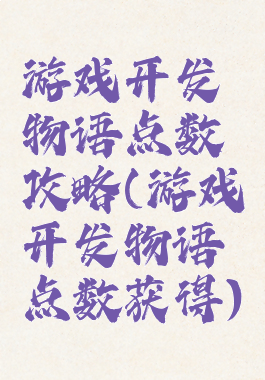 游戏开发
物语点数
攻略(游戏
开发物语
点数获得)